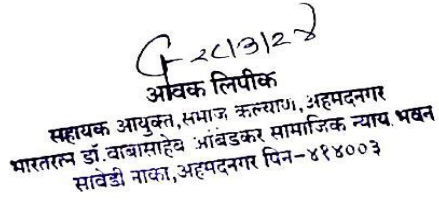 २८/३/२४
आवक लिपीक
सहायक आयुक्त,समाज कल्याण,अहमदनगर
भारतरत्न डॉ.बाबासाहेब आंबेडकर सामाजिक न्याय भवन
सावेडी नाका,अहमदनगर पिन-४१४००३